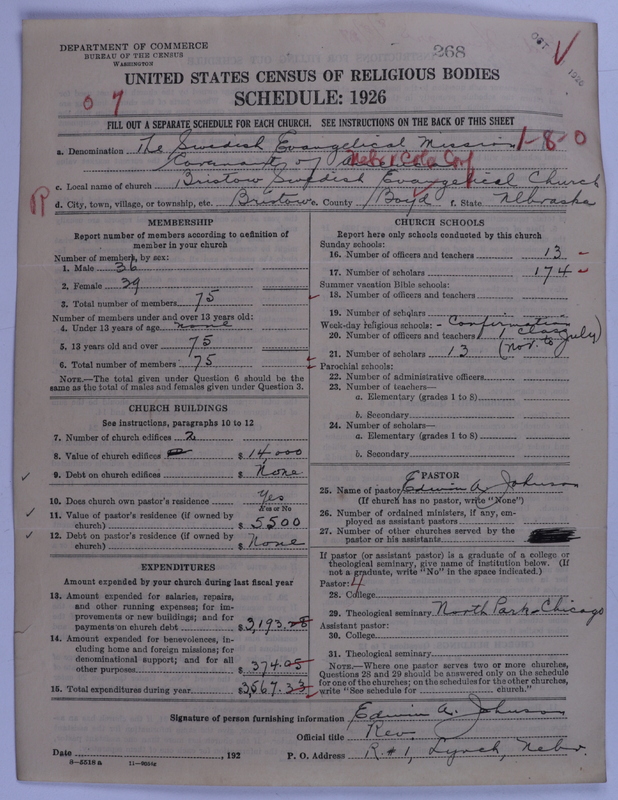 DEPARTMENT OF COMMERCE
BUREAU OF THE CENSUS
WASHINGTON
268
OCT 1926
UNITED STATES CENSUS OF RELIGIOUS BODIES
SCHEDULE: 1926
0 7
FILL OUT A SEPARATE SCHEDULE FOR EACH CHURCH. SEE INSTRUCTIONS ON THE BACK OF THIS SHEET
a. Denomination The Swedish Evangelical Mission 1-8-0
Covenant of
c. Local name of church Bristow Swedish Evangelical Church
d. City, town, village, or township, etc. Bristow e. County Boyd f. State Nebraska
MEMBERSHIP
Report number of members according to definition of
member in your church
Number of members, by sex:
1. Male 36
2. Female 39
3. Total number of members 75
Number of members under and over 13 years old:
4. Under 13 years of age none
5. 13 years old and over 75
6. Total number of members 75
NOTE.—The total given under Question 6 should be the
same as the total of males and females given under Question 3.
CHURCH BUILDINGS
See instructions, paragraphs 10 to 12
7. Number of church edifices 2
8. Value of church edifices $ 14000
9. Debt on church edifices $ None
10. Does church own pastor's residence Yes
Yes or No
11. Value of pastor's residence (if owned by
church) $ 5500
12. Debt on pastor's residence (if owned by
church) $ None
EXPENDITURES
Amount expended by your church during last fiscal year
13. Amount expended for salaries, repairs,
and other running expenses; for im-
provements or new buildings; and for
payments on church debt $ 3,193.28
14. Amount expended for benevolences, in-
cluding home and foreign missions; for
denominational support; and for all
other purposes $ 374.05
15. Total expenditures during year $ 3,567.33
CHURCH SCHOOLS
Report here only schools conducted by this church
Sunday schools:
16. Number of officers and teachers 13
17. Number of scholars 174
Summer vacation Bible schools:
18. Number of officers and teachers
19. Number of scholars
Week-day religious schools: - Confirmation
20. Number of officers and teachers 1 Class
21. Number of scholars 13 (Nov. to July)
Parochial schools:
22. Number of administrative officers
23. Number of teachers—
a. Elementary (grades 1 to 8)
b. Secondary
24. Number of scholars—
a. Elementary (grades 1 to 8)
b. Secondary
PASTOR
25. Name of pastor Edwin A. Johnson
(If church has no pastor, write "None")
26. Number of ordained ministers, if any, em-
ployed as assistant pastors
27. Number of other churches served by the
pastor or his assistants
If pastor (or assistant pastor) is a graduate of a college or
theological seminary, give name of institution below. (If
not a graduate, write "No" in the space indicated.)
Pastor: 4
28. College
29. Theological seminary North Park Chicago
Assistant pastor:
30. College
31. Theological seminary
NOTE.—Where one pastor serves two or more churches,
Questions 28 and 29 should be answered only on the schedule
for one of the churches; on the schedules for the other churches,
write "See schedule for church."
Signature of person furnishing information Edwin A. Johnson
Official title Rev.
Date , 192 P. O. Address R. #1, Lynch, Nebr.
8—5518 a